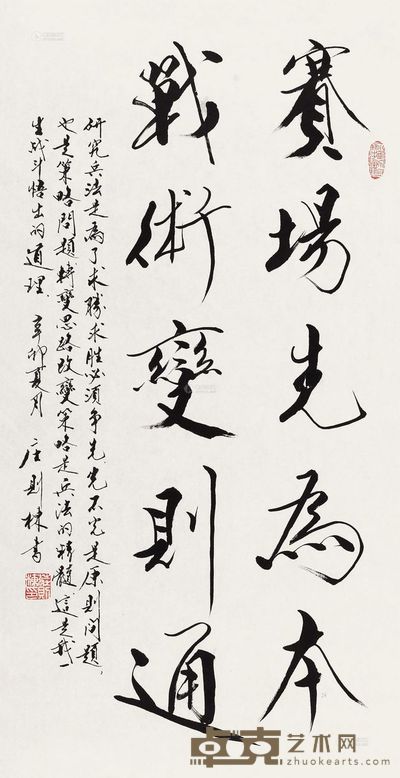 賽場先為本
戰術變則通
研究兵法是為了求勝求胜必須争先,先不先是原則问題,
也是策略问題轉變思路改變策略是兵法的精髓這是我一
生战斗悟出的道理. 辛卯夏月 庄則棟書
卓克艺术网
zhuokearts.com